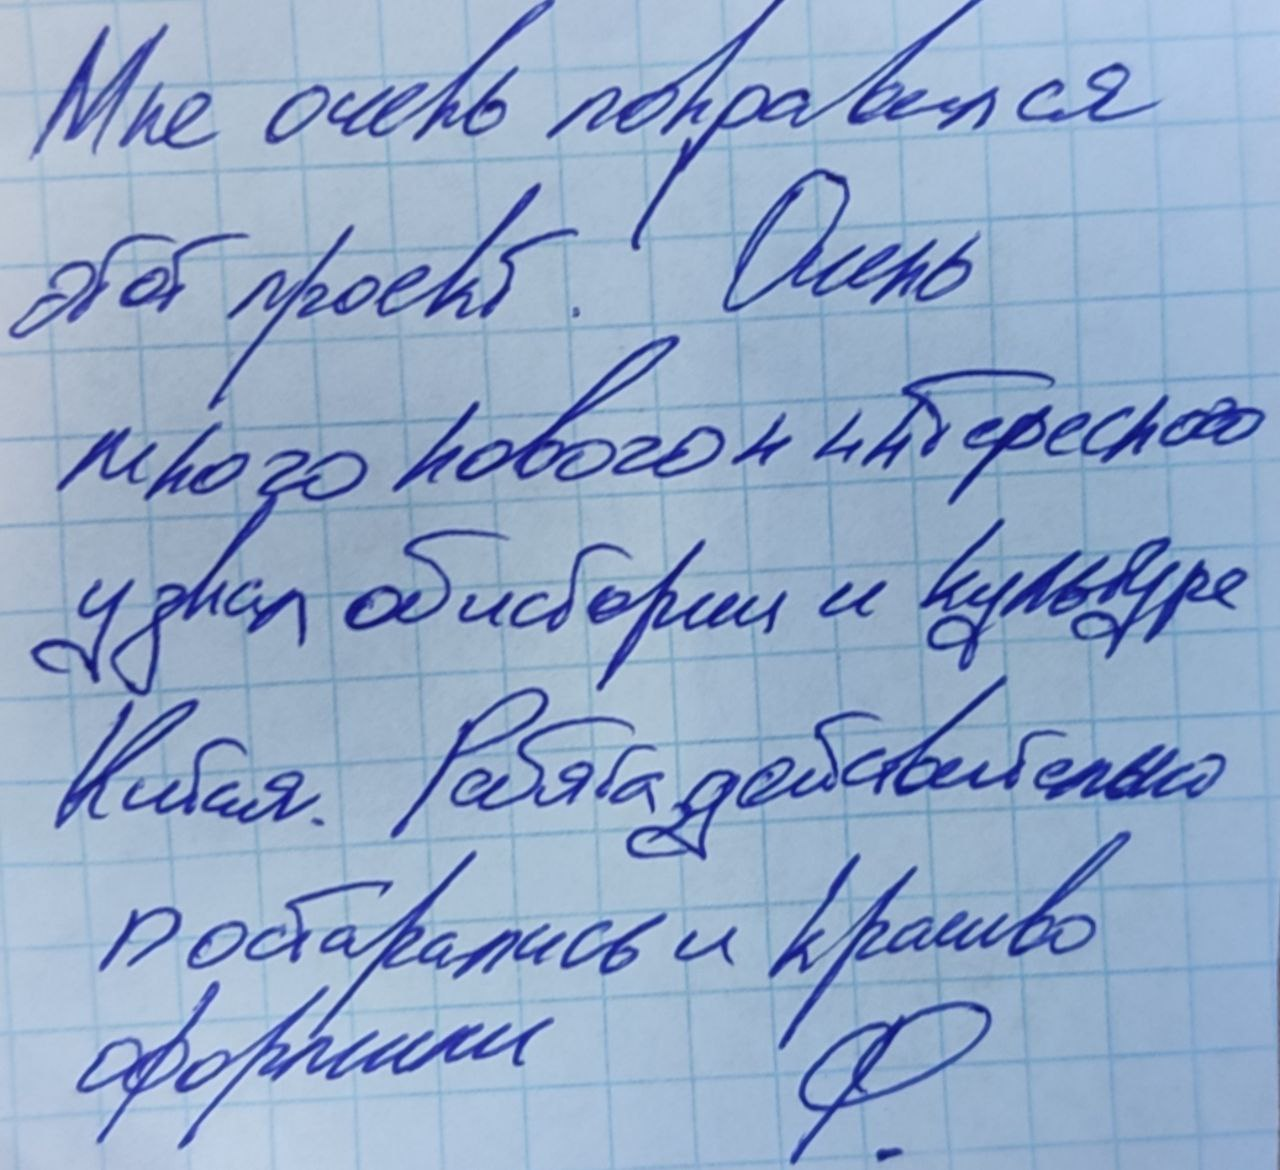 Мне очень понравился
этот проект. Очень
много нового и интересного
узнал об истории и культуре
Китая. Ребята действительно
постарались и красиво
оформили Ф.